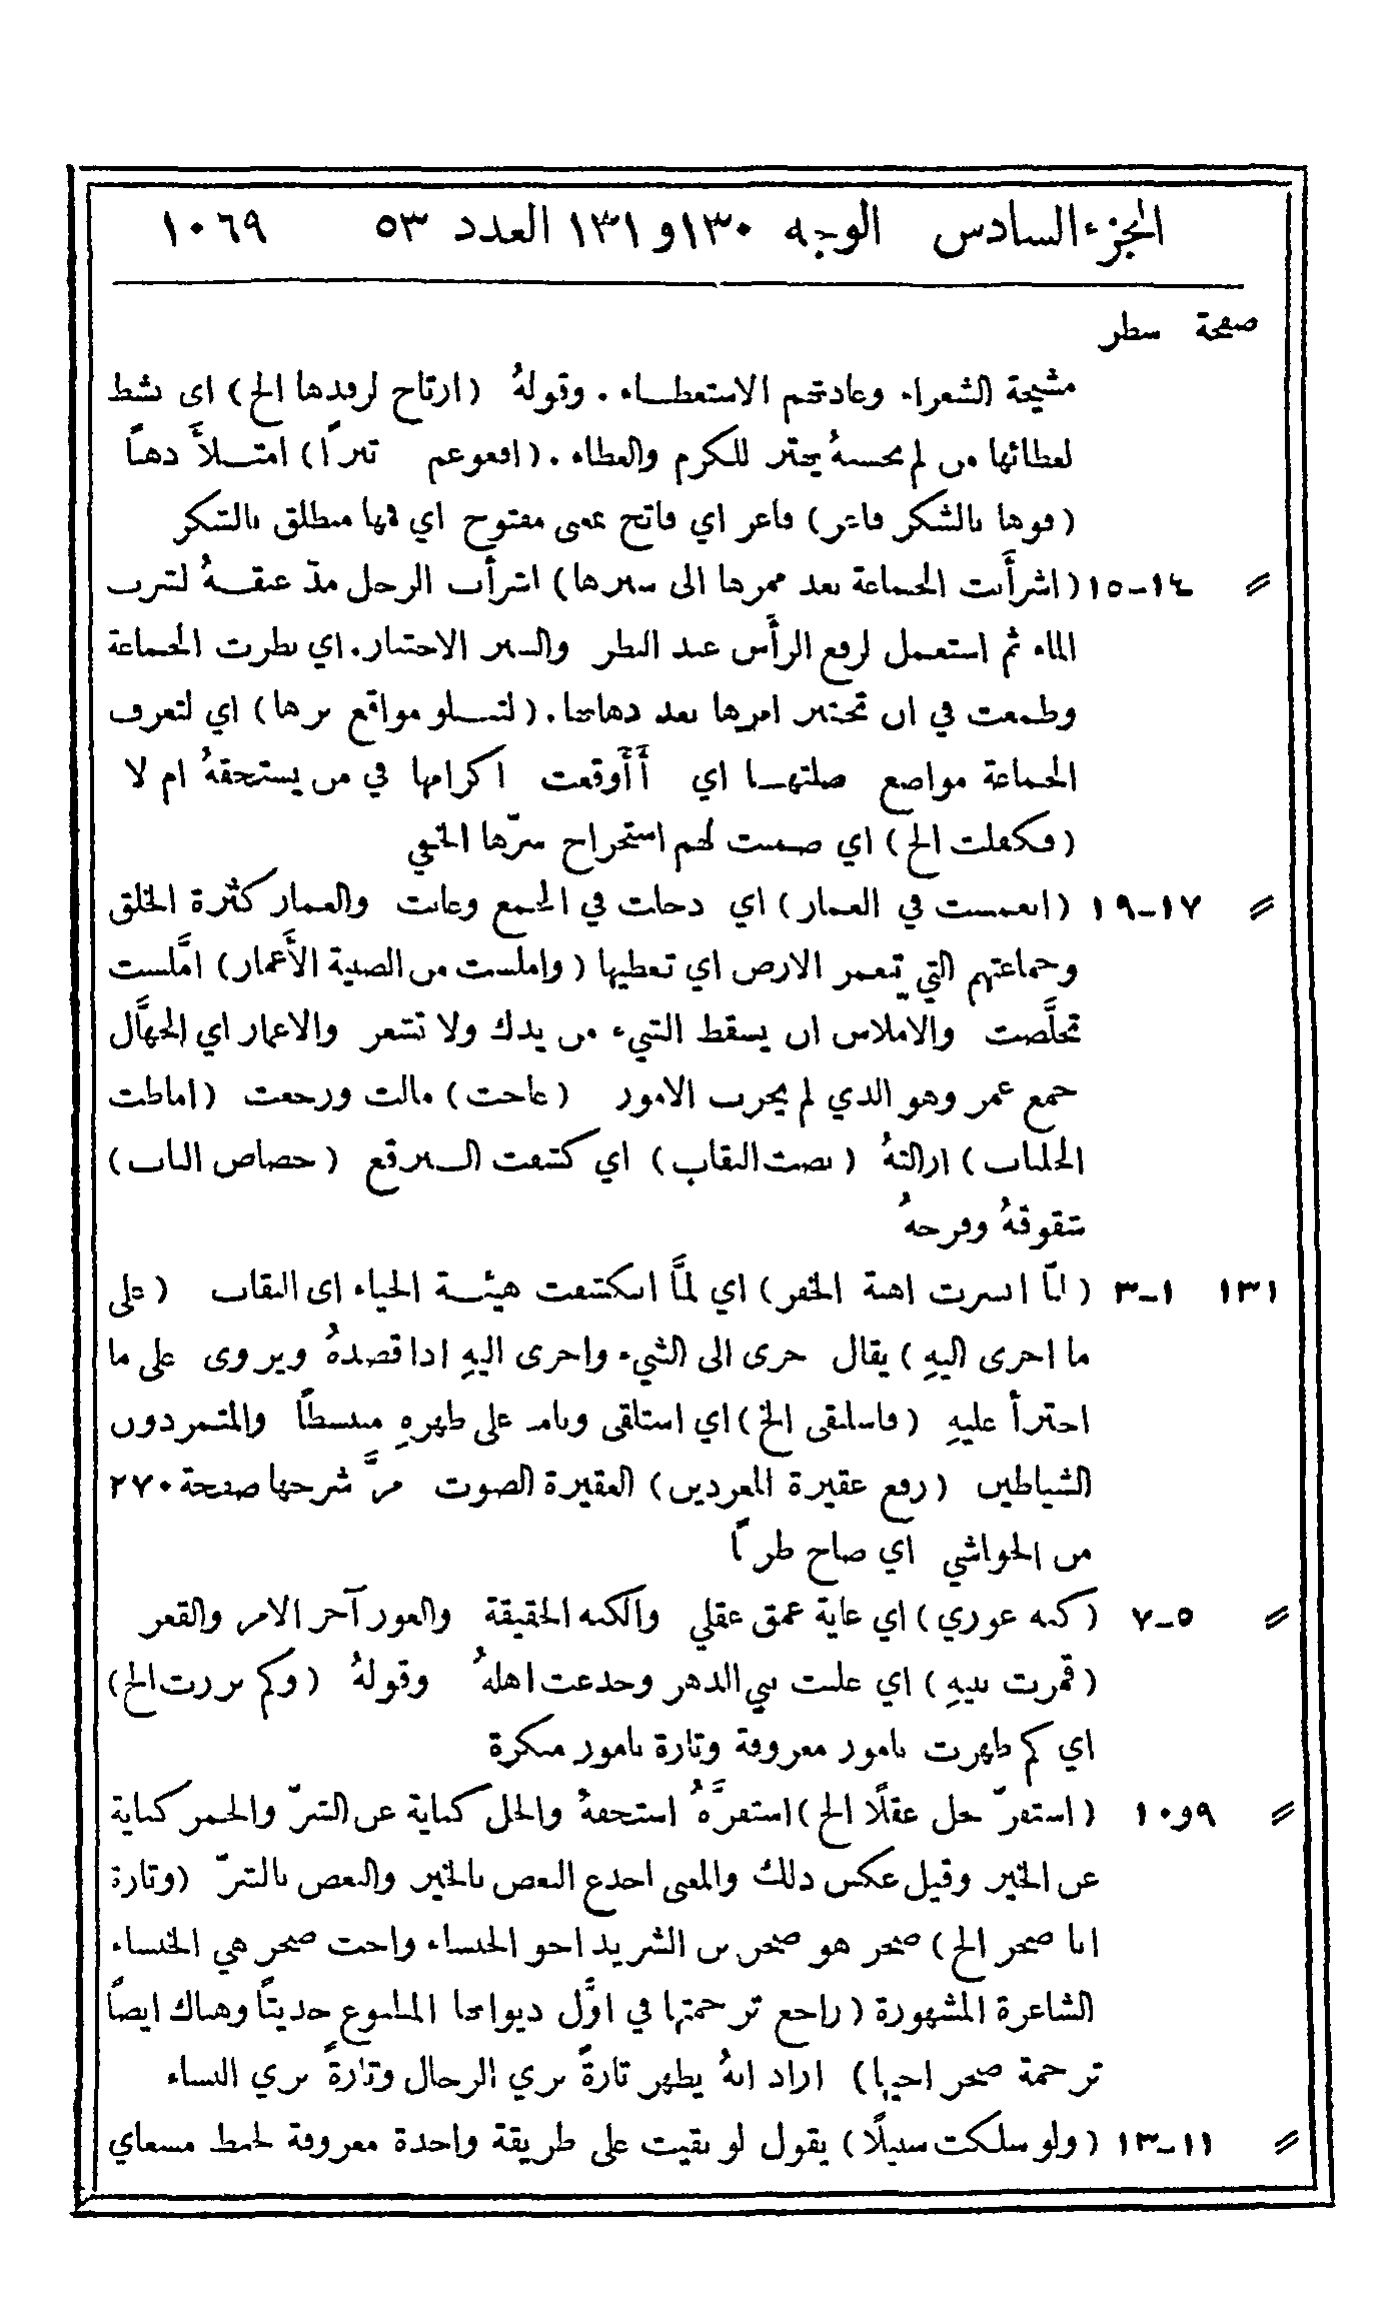 الجزء السادس الوجه ١٣٠ و ١٣١ العدد ٥٣ ١٠٦٩
صفحة سطر
مشيخة الشعراء وعادتهم الاستعطاء . وقولهُ (ارتاح لرفدها الخ) اي نشط
لعطائها من لم نحسبهُ يهتز للكرم والعطاء . (افعوعم تبراً) امتلأَ ذهباً
(فوها بالشكر فاغر) فاغر اي فاتح بمعنى مفتوح اي فمها منطلق بالشكر
〃 ١٤-١٥ (اشرأَبت الجماعة بعد ممرها الى سبرها) اشرأَب الرجل مدّ عنقهُ لشرب
الماء ثم استعمل لرفع الرأَس عند النظر والسبر الاختبار. اي نظرت الجماعة
وطمعت في ان تختبر امرها بعد ذهابها. (لتبلو مواقع برها) اي لتعرف
الجماعة مواضع صلتها اي أَأَوقعت اكرامها في من يستحقهُ ام لا
(فكفلت الخ) اي ضمنت لهم استخراج سرّها الخفي
〃 ١٧-١٩ (انغمست في الغمار) اي دخلت في الجمع وغابت والغمار كثرة الخلق
وجماعتهم التي تغمر الارض اي تغطيها (واملست من الصبية الأَغمار) امَّلست
تخلَّصت والاملاس ان يسقط الشيء من يدك ولا تشعر والاغمار اي الجهَّال
جمع غمر وهو الذي لم يجرب الامور (عاجت) مالت ورجعت (اماطت
الجلباب) ازالتهُ (نضت النقاب) اي كشفت البرقع (خصاص الباب)
شقوقهُ وفرجهُ
١٣١ ١-٣ (لمّا انسرت اهبة الخفر) اي لمَّا انكشفت هيئة الحياء اي النقاب (على
ما اجرى اليهِ) يقال جرى الى الشيء واجرى اليهِ اذا قصدهُ ويروى على ما
اجترأ عليهِ (فاسلنقى الخ) اي استلقى ونام على ظهرهِ منبسطاً والمتمردون
الشياطين (رفع عقيرة المغردين) العقيرة الصوت مرَّ شرحها صفحة ٢٧٠
من الحواشي اي صاح طرباً
〃 ٥-٧ (كنه غوري) اي غاية عمق عقلي والكنه الحقيقة والغور آخر الامر والقعر
(قمرت بنيهِ) اي غلبت بني الدهر وخدعت اهلهُ وقولهُ (وكم برزت الخ)
اي كم ظهرت بامور معروفة وتارة بامور منكرة
〃 ٩و١٠ (استفزّ بخل عقلًا الخ) استفزَّهُ استخفهُ والخل كناية عن الشرّ والخمر كناية
عن الخير وقيل عكس ذلك والمعنى اخدع البعض بالخير والبعض بالشرّ (وتارة
انا صخر الخ) صخر هو صخر بن الشريد اخو الخنساء واخت صخر هي الخنساء
الشاعرة المشهورة (راجع ترجمتها في اوَّل ديوانها المطبوع حديثاً وهناك ايضاً
ترجمة صخر اخيها) اراد انهُ يظهر تارةً بزي الرجال وتارةً بزي النساء
〃 ١١-١٣ (ولو سلكت سبيلًا) يقول لو بقيت على طريقة واحدة معروفة لحبط مسعاي